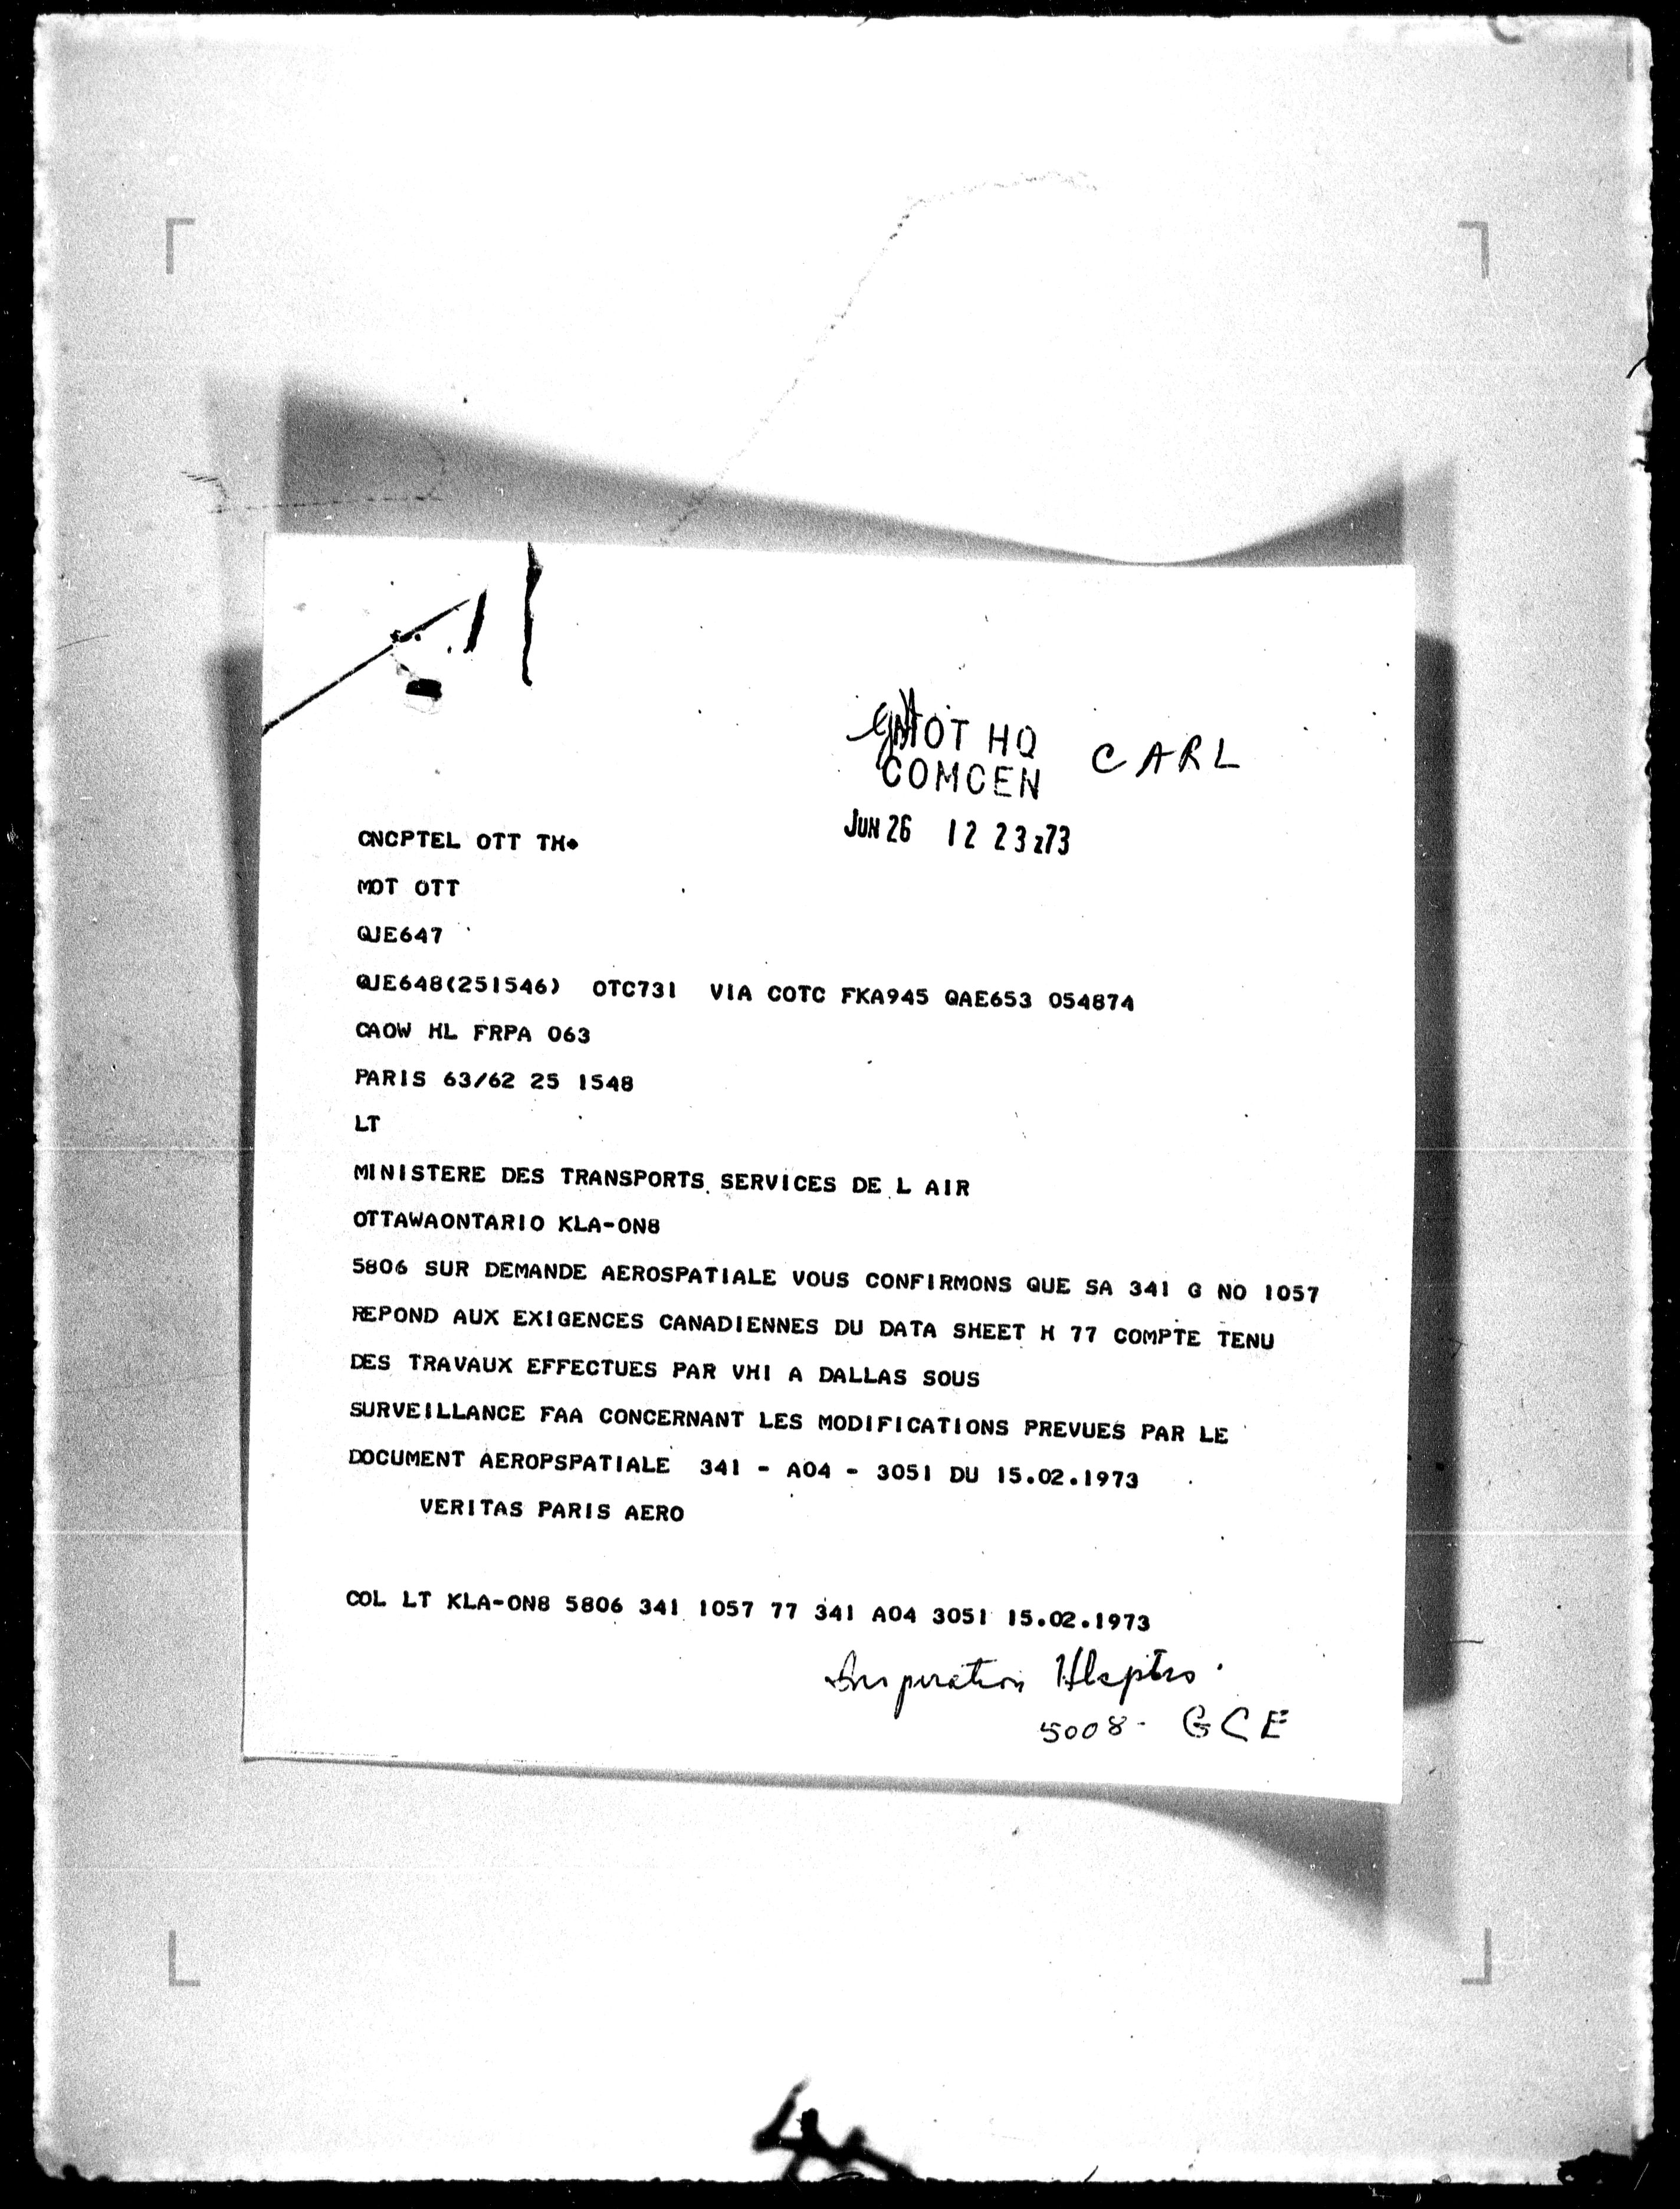 MOT HQ CARL
COMCEN
JUN 26 12 23 z73
CNCPTEL OTT TH
MOT OTT
QJE647
QJE648(251546) OTC731 VIA COTC FKA945 QAE653 054874
CAOW HL FRPA 063
PARIS 63/62 25 1548
LT
MINISTERE DES TRANSPORTS SERVICES DE L AIR
OTTAWAONTARIO KLA-ON8
5806 SUR DEMANDE AEROSPATIALE VOUS CONFIRMONS QUE SA 341 G NO 1057
REPOND AUX EXIGENCES CANADIENNES DU DATA SHEET H 77 COMPTE TENU
DES TRAVAUX EFFECTUES PAR VHI A DALLAS SOUS
SURVEILLANCE FAA CONCERNANT LES MODIFICATIONS PREVUES PAR LE
DOCUMENT AEROPSPATIALE 341 - A04 - 3051 DU 15.02.1973
VERITAS PARIS AERO
COL LT KLA-ON8 5806 341 1057 77 341 A04 3051 15.02.1973
5008- GCE